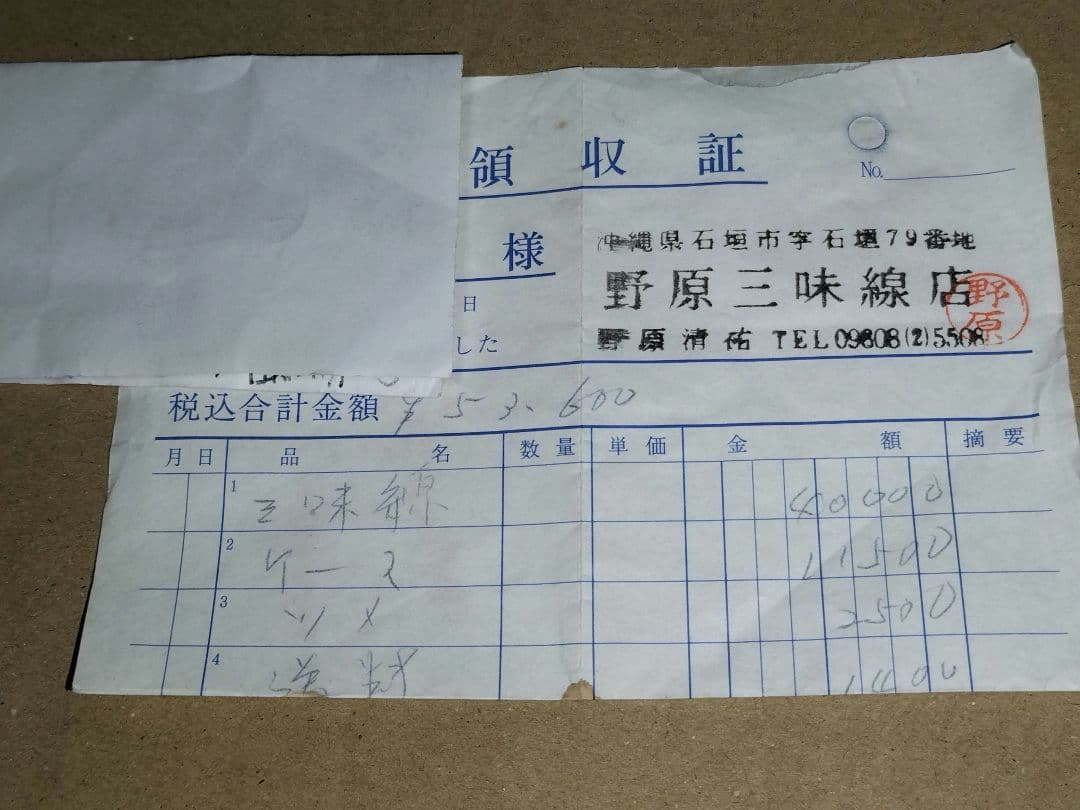 領収証
No.
様
沖縄県石垣市字石垣79番地
野原三味線店
野原
野原清祐 TEL 09808(2)5508
日
した
税込合計金額 ¥53,600
月日 品名 数量 単価 金額 摘要
1 三味線 40000
2 ケース 11500
3 ツメ 2500
4 送料 1400